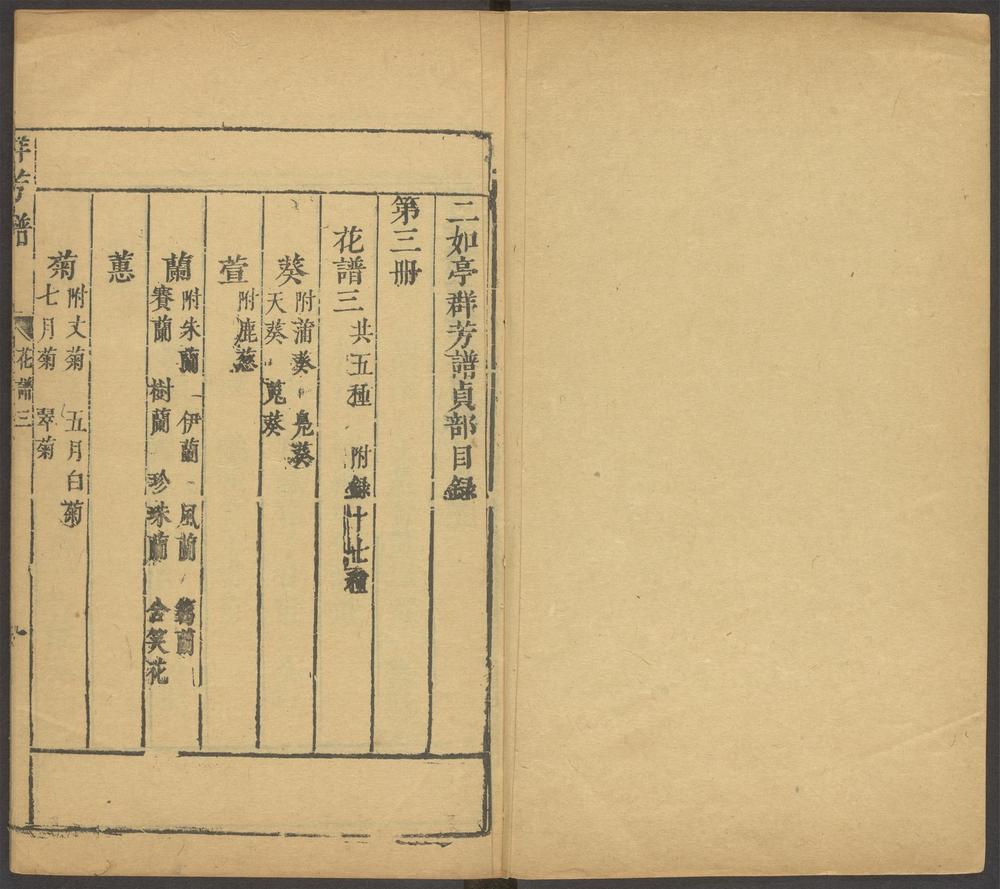 二如亭群芳譜貞部目録
第三冊
花譜三 共五種 附録十七種
葵 附蒲葵 鳧葵
天葵 菟葵
萱 附鹿葱
蘭 附朱蘭 伊蘭 風蘭 蒻蘭
賽蘭 樹蘭 珍珠蘭 含笑花
蕙
菊 附丈菊 五月白菊
七月菊 翠菊
群芳譜 花譜三